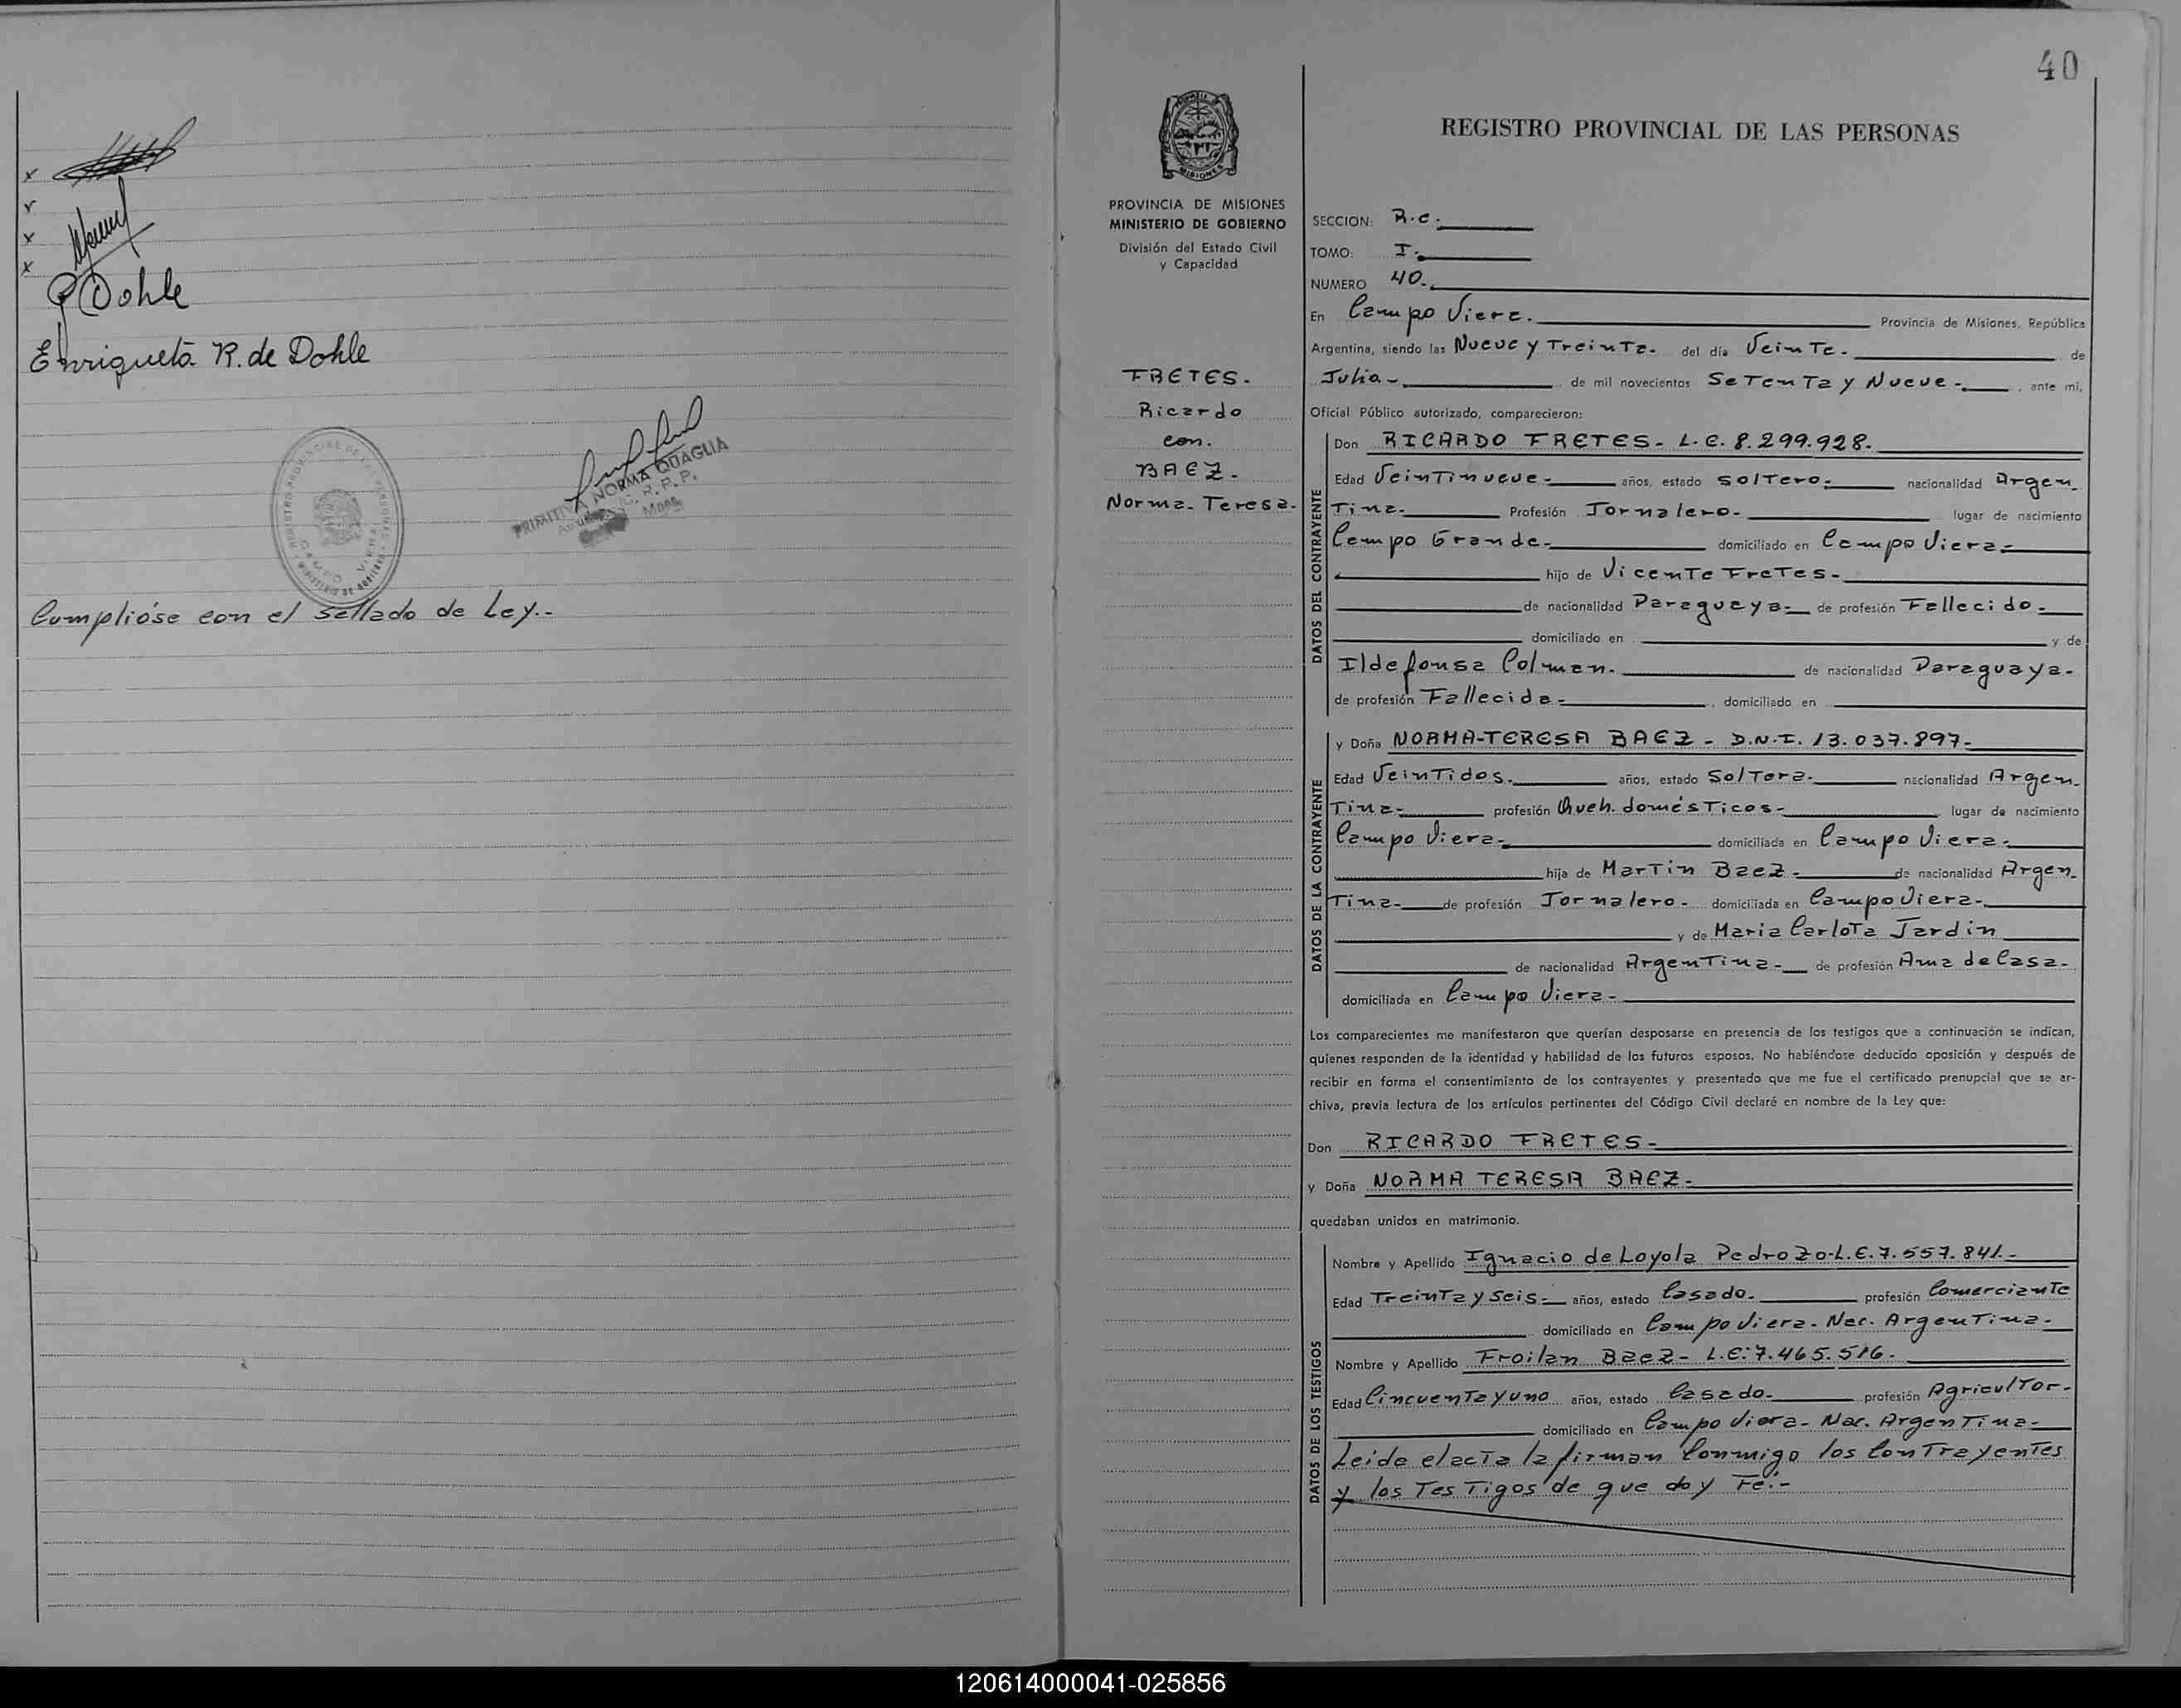 P Dohle
Enriqueta R. de Dohle
NORMA QUAGLIA
C. R. P. P.
CAMPO VIERA
Cumplióse con el sellado de Ley.-
40
PROVINCIA DE MISIONES
MINISTERIO DE GOBIERNO
División del Estado Civil
y Capacidad
FRETES.
Ricardo
con.
BAEZ.
Norma Teresa.
REGISTRO PROVINCIAL DE LAS PERSONAS
SECCION: R.C.
TOMO: I.
NUMERO 40.
En Campo Viera. Provincia de Misiones, República
Argentina, siendo las Nueve y Treinta. del día Veinte. de
Julio.- de mil novecientos Setenta y Nueve-. , ante mí,
Oficial Público autorizado, comparecieron:
DATOS DEL CONTRAYENTE
Don RICARDO FRETES- L.E. 8.299.928.
Edad Veintinueve- años, estado soltero. nacionalidad Argen-
Tina. Profesión Jornalero- lugar de nacimiento
Campo Grande- domiciliado en Campo Viera-
hijo de Vicente Fretes-
de nacionalidad Paraguaya- de profesión Fallecido-
domiciliado en y de
Ildefonsa Colman. de nacionalidad Paraguaya-
de profesión Fallecida- , domiciliado en
DATOS DE LA CONTRAYENTE
y Doña NORMA-TERESA BAEZ - D.N.I. 13.037.897-
Edad Veintidos. años, estado Soltera. nacionalidad Argen-
Tina- profesión Queh. domésticos- lugar de nacimiento
Campo Viera- domiciliada en Campo Viera-
hija de Martin Baez- de nacionalidad Argen-
Tina- de profesión Jornalero- domiciliada en Campo Viera-
y de Maria Carlota Jardin
de nacionalidad Argentina- de profesión Ama de Casa-
domiciliada en Campo Viera-
Los comparecientes me manifestaron que querían desposarse en presencia de los testigos que a continuación se indican,
quienes responden de la identidad y habilidad de los futuros esposos. No habiéndose deducido oposición y después de
recibir en forma el consentimiento de los contrayentes y presentado que me fue el certificado prenupcial que se ar-
chiva, previa lectura de los artículos pertinentes del Código Civil declaré en nombre de la Ley que:
Don RICARDO FRETES-
y Doña NORMA TERESA BAEZ-
quedaban unidos en matrimonio.
DATOS DE LOS TESTIGOS
Nombre y Apellido Ignacio de Loyola Pedrozo-L.E.7.557.841.-
Edad Treinta y seis- años, estado Casado- profesión Comerciante
domiciliado en Campo Viera- Nac. Argentina-
Nombre y Apellido Froilan Baez- L.E:7.465.516.
Edad Cincuenta y uno años, estado Casado- profesión Agricultor-
domiciliado en Campo Viera- Nac. Argentina-
Leida el acta la firman Conmigo los Contrayentes
y los Testigos de que doy Fé:-
120614000041-025856